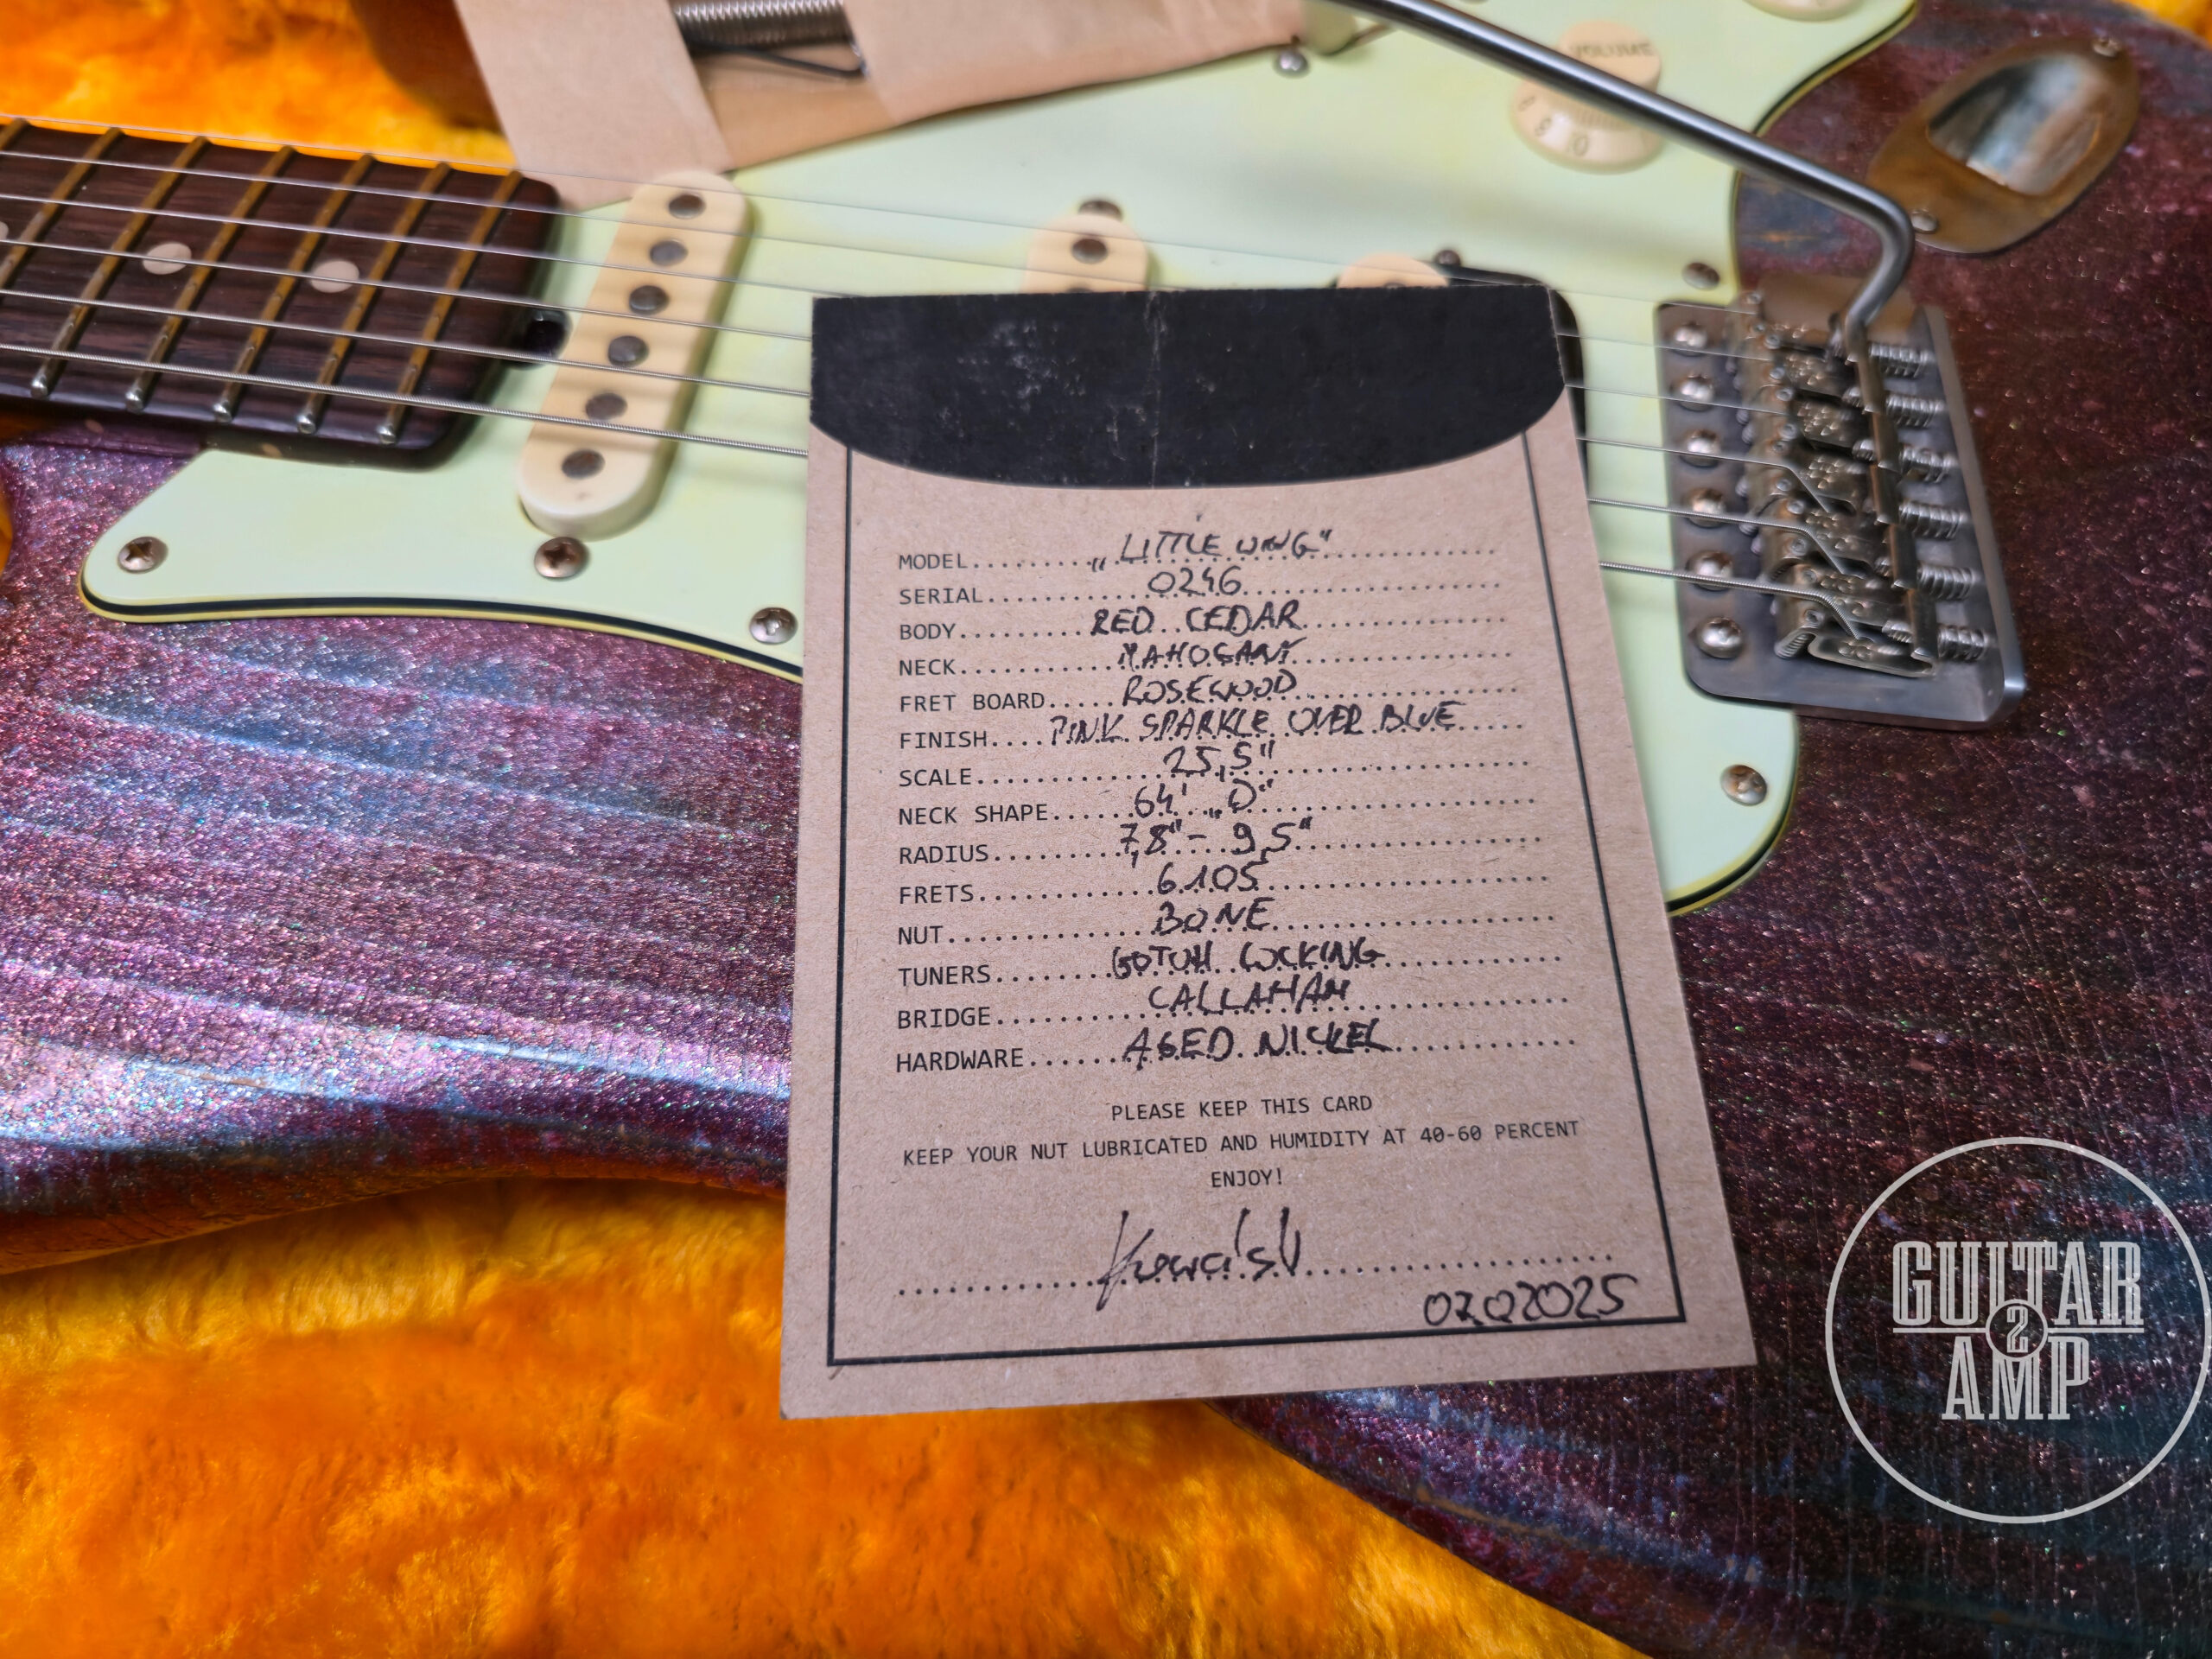 VOLUME
MODEL.........„LITTLE WING"
SERIAL.........0246
BODY.........RED CEDAR
NECK.........MAHOGANY
FRET BOARD.....ROSEWOOD
FINISH....PINK SPARKLE OVER BLUE
SCALE.........25,5"
NECK SHAPE......64' „D"
RADIUS.........7,8" - 9,5"
FRETS.........6105
NUT.........BONE
TUNERS.......GOTOH LOCKING
BRIDGE.........CALLAHAM
HARDWARE......AGED NICKEL
PLEASE KEEP THIS CARD
KEEP YOUR NUT LUBRICATED AND HUMIDITY AT 40-60 PERCENT
ENJOY!
GUITAR
2
AMP